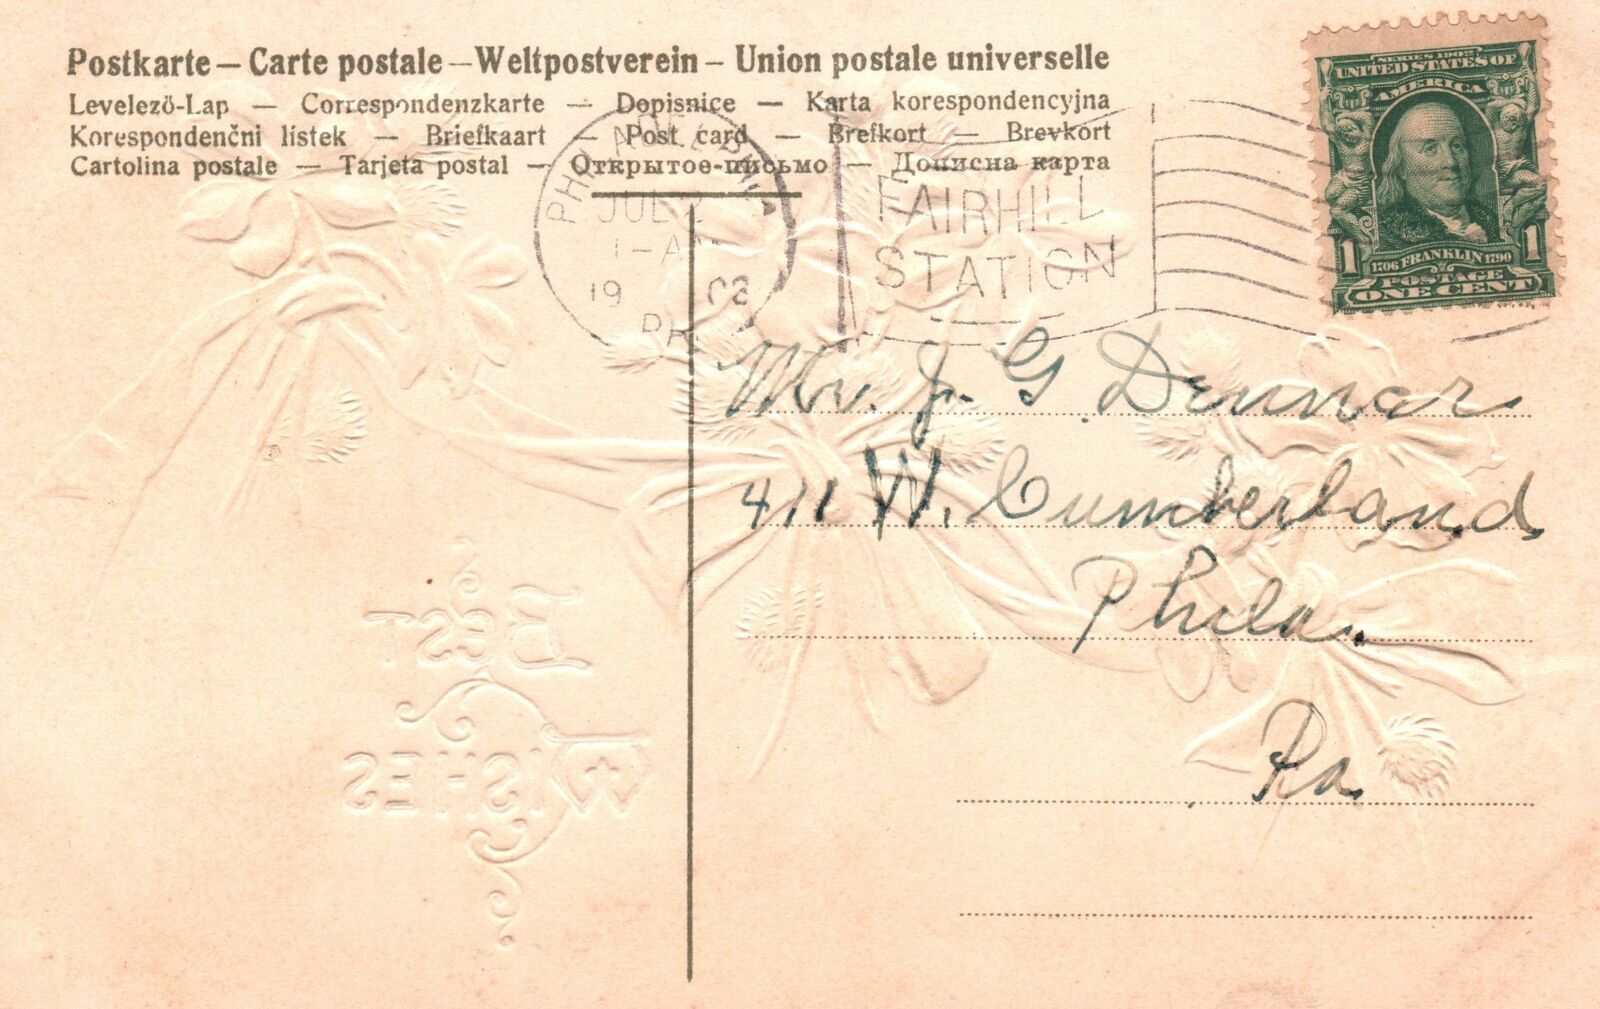 Postkarte — Carte postale — Weltpostverein — Union postale universelle
Levelező-Lap — Correspondenzkarte — Dopisnice — Karta korespondencyjna
Korespondenčni lístek — Briefkaart — Post card — Brefkort — Brevkort
Cartolina postale — Tarjeta postal — Открытое-письмо — Дописна карта
SERIES 1902
UNITED STATES OF
AMERICA
1706 FRANKLIN 1790
1 POSTAGE 1
ONE CENT
PHILADELPHIA
JUL
1-A
19
PA
FAIRHILL
STATION
Mr. J. G. Dennar
411 W. Cumberland
Phila.
Pa.
BEST
WISHES